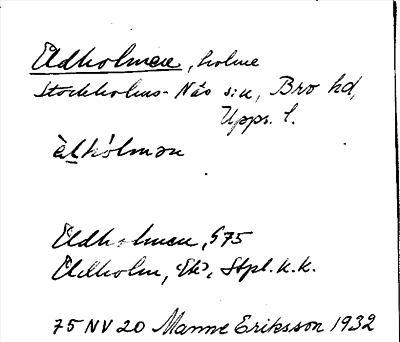 Eldholmen, holme
Stockholms-Näs sn, Bro hd,
Upps. l.
Eldholmen, S75
Eldholm, Ek, Stpl.k.k.
75 NV 20 Manne Eriksson 1932